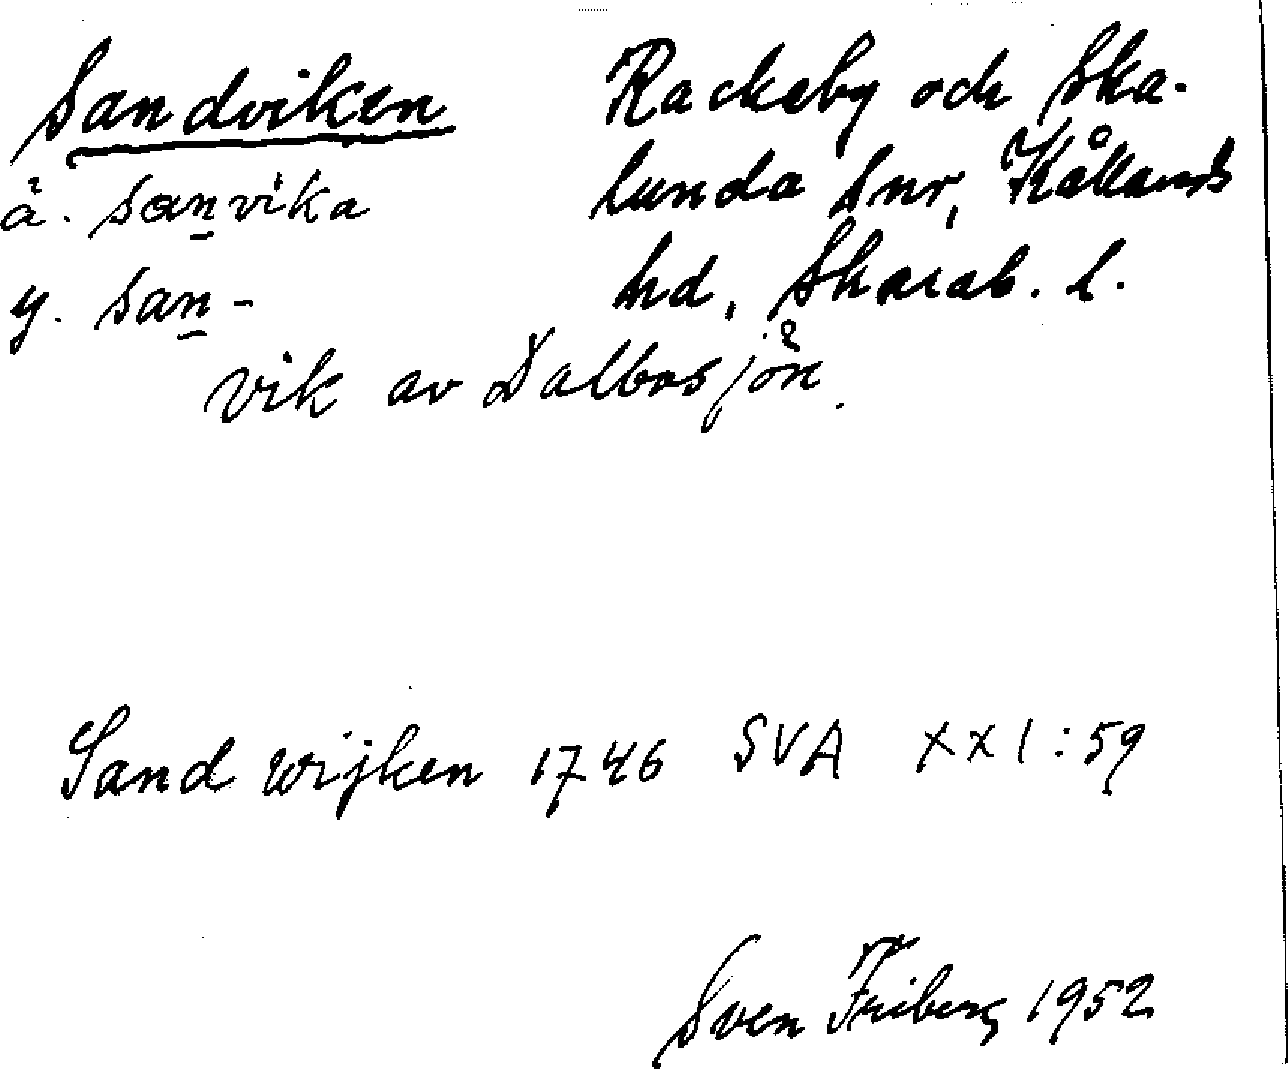 Sandviken
Rackeby och Ska-
ä. sanvika
lunda snr, Kållands
y. san-
hd, Skarab. l.
vik av Dalbosjön.
Sand wijken 1746 SVA XXI:59
Sven Friberg 1952